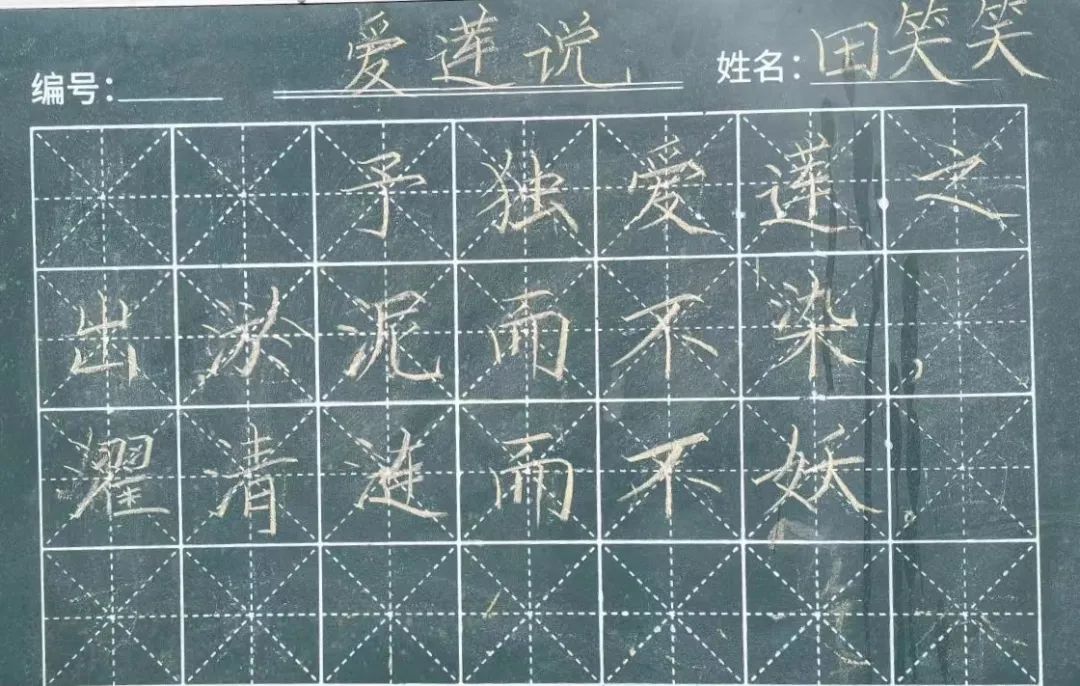 编号： 爱莲说 姓名：田笑笑
予独爱莲之
出淤泥而不染，
濯清涟而不妖。